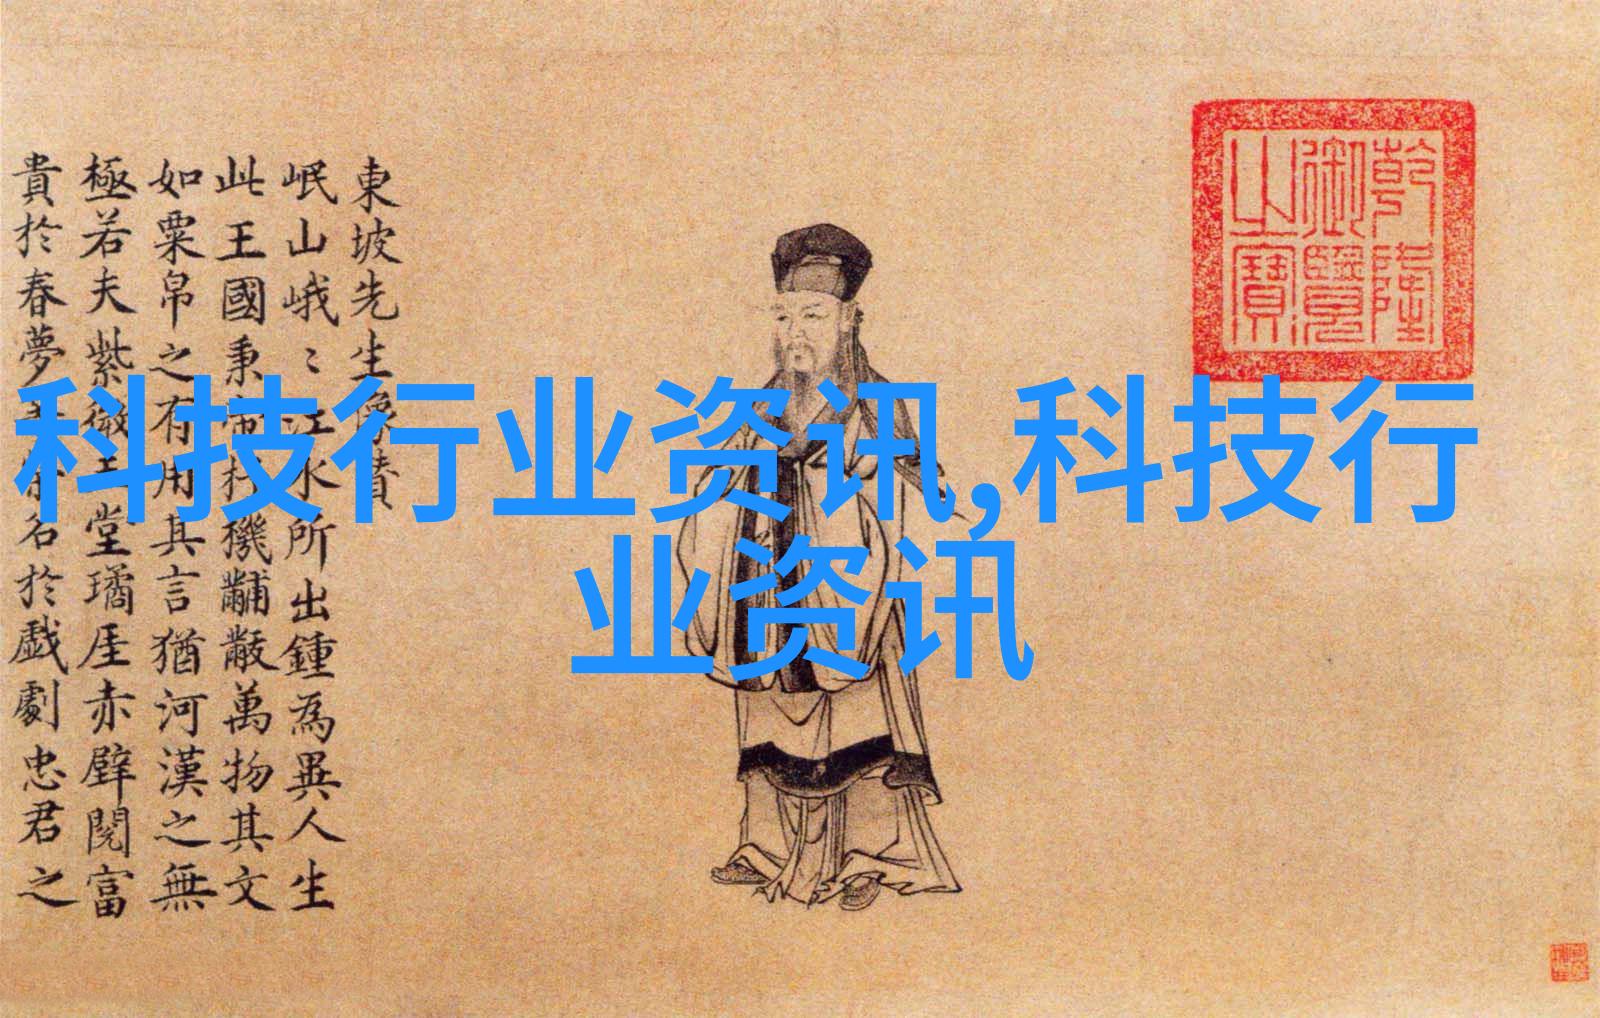 乾隆
御覽
之寶
東坡先生像贊
岷山峨〻江水所出鍾為異人生
此王國秉帝杼機黼黻萬物其文
如粟帛之有用其言猶河漢之無
極若夫紫微玉堂璚厓赤壁閱富
貴於春夢名於戲劇忠君之
科技行业资讯,科技行
业资讯